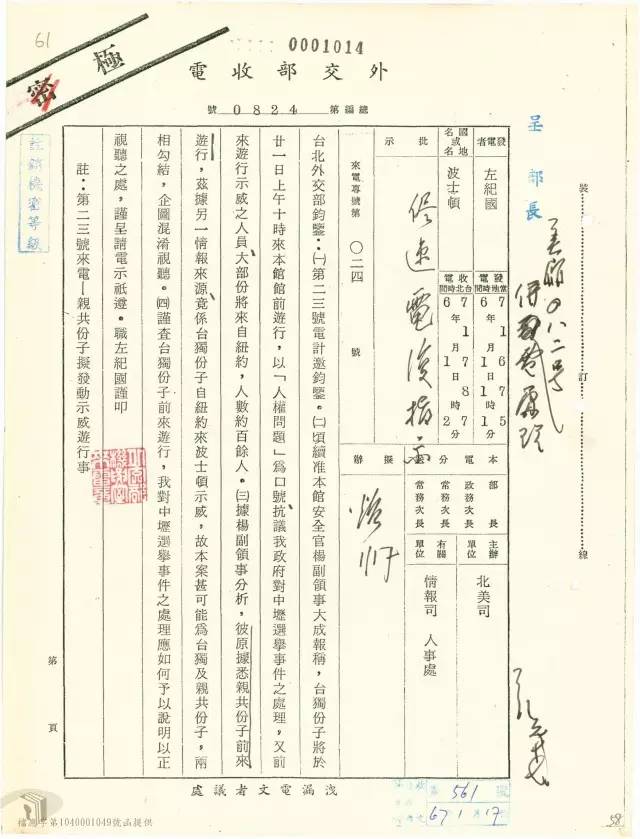 61
極密
0001014
外交部收電
總編第 0824 號
發電者 左紀國
國名或地名 波士頓
發電當地時間 67年1月16日17時15分
收電台北時間 67年1月17日8時27分
批示
來電專號第 〇二四 號
本電分送
部長
政務次長
常務次長
常務次長
主辦單位 北美司
有關單位 情報司 人事處
擬辦
台北外交部鈞鑒：㈠第二三號電計邀鈞鑒。㈡頃續准本館安全官楊副領事大成報稱，台獨份子將於
廿一日上午十時來本館館前遊行，以「人權問題」爲口號抗議我政府對中壢選舉事件之處理，又前
來遊行示威之人員大部份將來自紐約，人數約百餘人。㈢據楊副領事分析，彼原據悉親共份子前來
遊行，茲據另一情報來源竟係台獨份子自紐約來波士頓示威，故本案甚可能爲台獨及親共份子，兩
相勾結，企圖混淆視聽。㈣謹查台獨份子前來遊行，我對中壢選舉事件之處理應如何予以說明以正
視聽之處，謹呈請電示祇遵。職左紀國謹叩
註：第二三號來電—親共份子擬發動示威遊行事
註銷機密等級
呈部長
裝訂線
第 頁
洩漏電文者議處
561
67.1.17
58
檔應字第1040001049號函提供